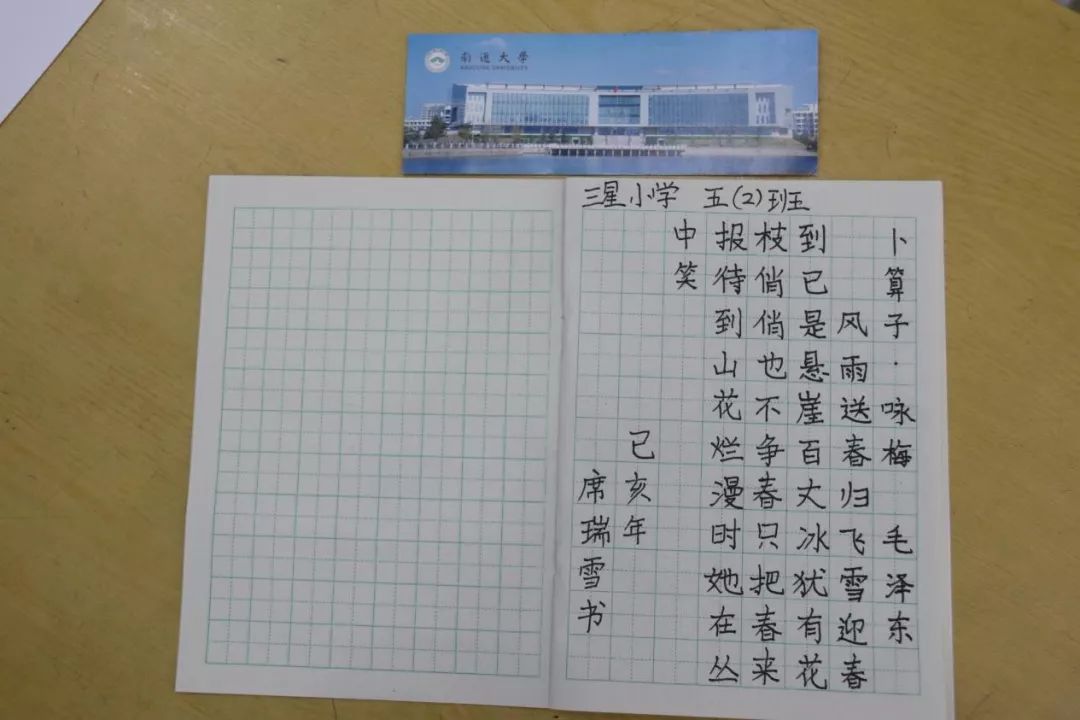 南通大学
NANTONG UNIVERSITY
三星小学 五(2)班
卜算子·咏梅 毛泽东
风雨送春归飞雪迎春
到已是悬崖百丈冰犹有花
枝俏俏也不争春只把春来
报待到山花烂漫时她在丛
中笑
己亥年
席瑞雪书